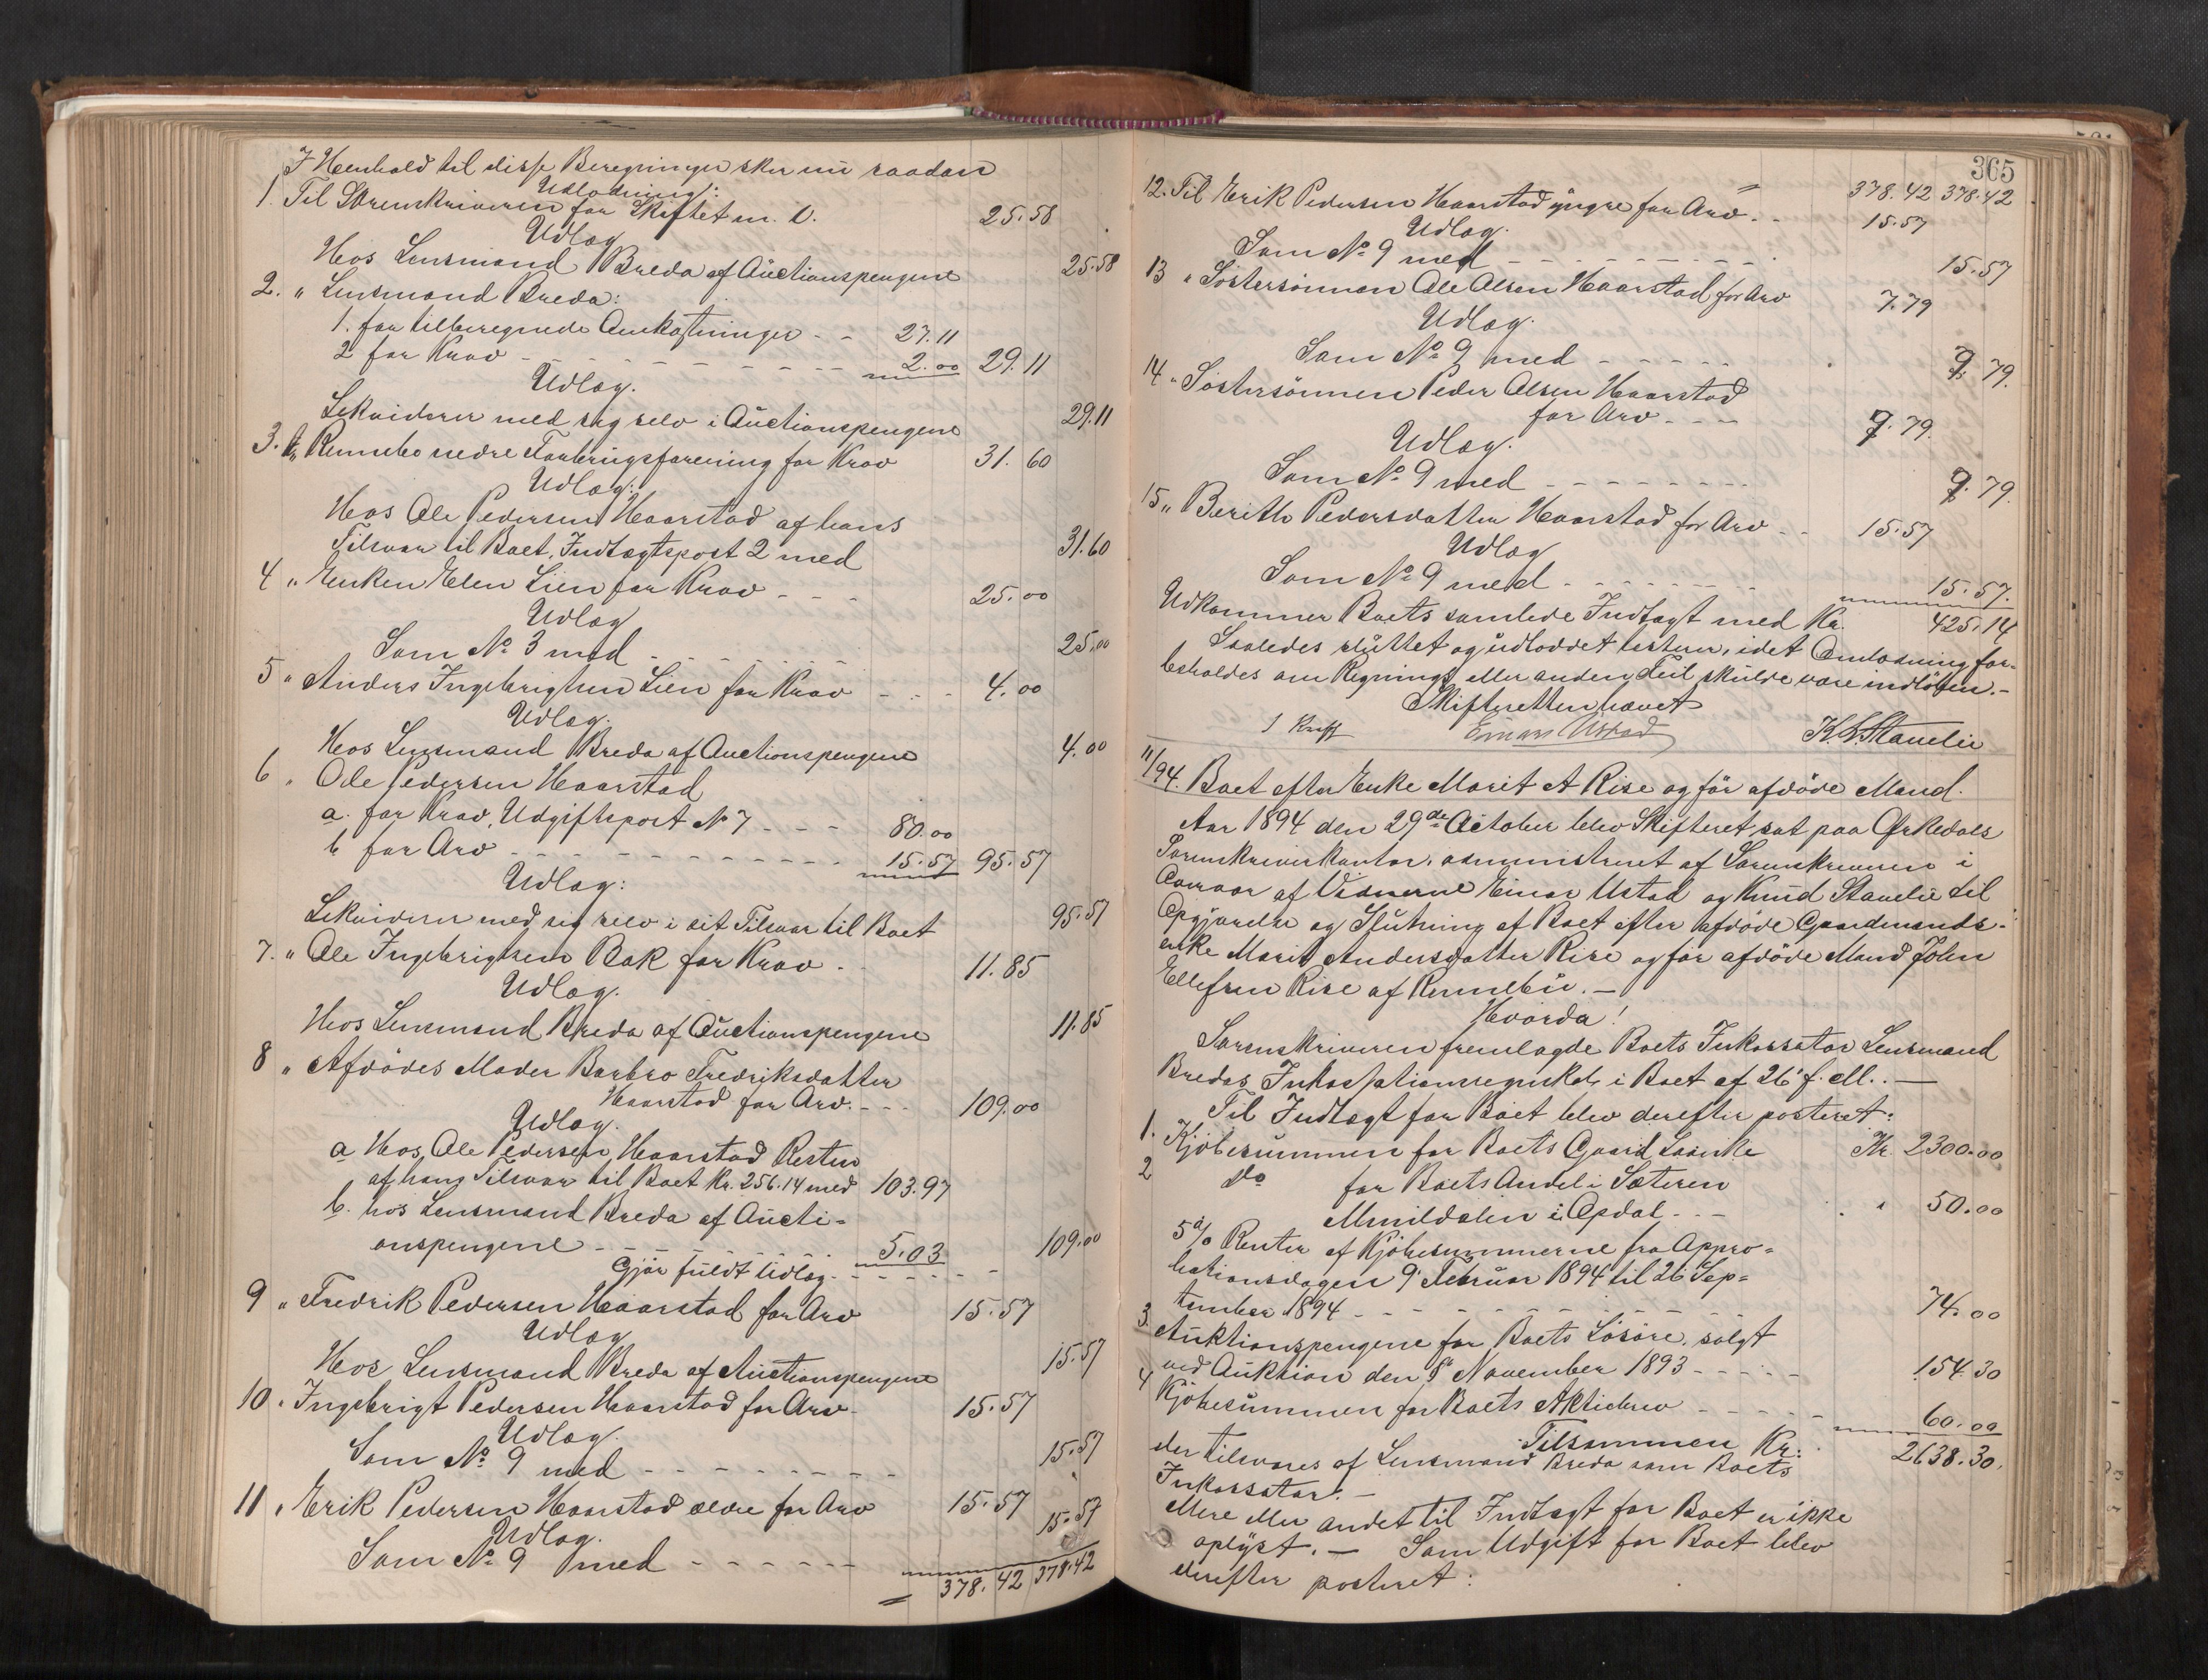 I Henhold til disse Beregninger sker nu saadan
Udlodning:
1. Til Sorenskriveren for Skiftet m. v. 25.58
Udlæg
Hos Lensmand Breda af Auctionspengene 25.58
2. " Lensmand Breda:
1. for tilberegnede Omkostninger - - 27.11
2 for Krav - - - - - - 2.00 29.11
Udlæg.
Likviderer med sig selv i Auctionspengene 29.11
3. " Rennebo nedre Forbrugsforening for Krav 31.60
Udlæg:
Hos Ole Pedersen Haarstad af hans
Tilsvar til Boet, Indtægtspost 2 med 31.60
4 " Enken Elen Lien for Krav - - - 25.00
Udlæg
Som No 3 med - - - - - - 25.00
5 " Anders Ingebrigtsen Lien for Krav - - - 4.00
Udlæg.
Hos Lensmand Breda af Auctionspengene 4.00
6 " Ole Pedersen Haarstad
a. for Krav, Udgiftspost No 7 - - - 80.00
b for Arv - - - - - - - 15.57 95.57
Udlæg:
Likviderer med sig selv i sit Tilsvar til Boet 95.57
7. " Ole Ingebrigtsen Bak for Krav - 11.85
Udlæg.
Hos Lensmand Breda af Auctionspengene 11.85
8 " Afdødes Moder Barbro Fredriksdatter
Haarstad for Arv. - - - 109.00
Udlæg.
a Hos Ole Pedersen Haarstad Resten
af hans Tilsvar til Boet Kr. 256.14 med 103.97
b. hos Lensmand Breda af Aucti-
onspengene - - - - - - 5.03 109.00
Gjør fuldt Udlæg - - - - - -
9 " Fredrik Pedersen Haarstad for Arv 15.57
Udlæg
Hos Lensmand Breda af Auctionspengene 15.57
10 " Ingebrigt Pedersen Haarstad for Arv - 15.57
Udlæg.
Som No 9 med - - - - - - - - 15.57
11 " Erik Pedersen Haarstad ældre for Arv 15.57
Udlæg.
Som No 9 med - - - - - - 15.57
378.42 378.42
365
378.42 378.42
12. Til Erik Pedersen Haarstad yngre for Arv - - 15.57
Udlæg.
Som No 9 med - - - - - - - - - 15.57
13 " Søstersønnen Ole Olsen Haarstad for Arv 7.79
Udlæg.
Som No 9 med - - - - - 7.79.
14 " Søstersønnen Peder Olsen Haarstad
for Arv - - - 7.79.
Udlæg.
Som No 9 med - - - - - - - - 7.79.
15 " Berith Pedersdatter Haarstad for Arv - - 15.57
Udlæg
Som No 9 med - - - - - - - 15.57.
Udkommer Boets samlede Indtægt med Kr. 425.14
Saaledes sluttet og udloddet testerer, idet Omlodning for-
beholdes om Regnings eller anden Feil skulde være indløben. -
Skifteretten hævet
Einar Ustad K. S. Stavelie
11/94. Boet efter Enke Marit A Rise og før afdøde Mand.
Aar 1894 den 29de October blev Skifteret sat paa Ørkedals
Sorenskriverkontor, administreret af Sorenskriveren i
Overvær af Vidnerne Einar Ustad og Knud Stavelie til
Opgjørelse og Slutning af Boet efter afdøde Gaardmands-
enke Marit Andersdatter Rise og før afdøde Mand John
Ellefsen Rise af Rennebu. -
Hvorda!
Sorenskriveren fremlagde Boets Inkassator Lensmand
Bredas Inkassationsregnskab i Boet af 26' f. M.. -
Til Indtægt for Boet blev derefter posteret:
1. Kjøbesummen for Boets Gaard Kr. 2300.00
2 do for Boets Andel i Sæteren
i Opdal - - - " 50.00
5 % Renter af Kjøbesummerne fra Appro-
bationsdagen 9' Februar 1894 til 26' Sep-
tember 1894 - - - - - - - - - - 74.00
3. Auktionspengene for Boets Løsøre, solgt
ved Auktion den 8' November 1893 - - - - - 154.30
4 Kjøbesummen for Boets Aktiebrev - - - - - 60.00
Tilsammen Kr: 2638.30.
der tilsvares af Lensmand Breda som Boets
Inkassator. -
Mere eller andet til Indtægt for Boet er ikke
oplyst. - Som Udgift for Boet blev
derefter posteret: